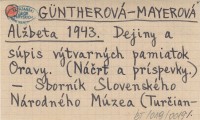 GÜNTHEROVÁ-MAYEROVÁ
Alžbeta 1943. Dejiny a
súpis výtvarných pamiatok
Oravy. (Náčrt a príspevky.)
– Sborník Slovenského
Národného Múzea (Turčian-